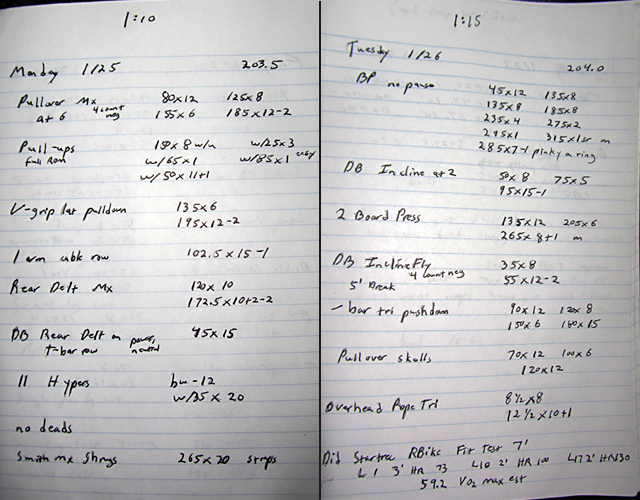 1:10
Monday 1/25 203.5
Pullover Mx 80x12 125x8
4 count neg
at 6 155x6 185x12-2
Pull-ups w/25x3
Full Rom w/65x1 w/85x1 easy
w/50x11+1
V-grip lat pulldown 135x6
195x12-2
1 arm cable row 102.5x15-1
Rear Delt Mx 120x10
172.5x10+2-2
DB Rear Delt on power, neutral 45x15
t-bar row
11 Hypers bw-12
w/35x20
no deads
Smith mx Shrugs 265x20 straps
1:15
Tuesday 1/26 204.0
BP no pause 45x12 135x8
135x8 185x8
235x4 275x2
295x1 315x1 m
285x7-1 pinky a ring
DB Incline at 2 50x8 75x5
95x15-1
2 Board Press 135x12 205x6
265x8+1 m
DB Incline Fly 35x8
4 count neg
5' Break 55x12-2
- bar tri pushdown 90x12 120x8
150x6 160x15
Pullover skulls 70x12 100x6
120x12
Overhead Rope Tri 8 1/2x8
12 1/2x10+1
Did Startrac RBike Fit Test 7'
L 1 3' HR 73 L10 2' HR 100 L17 2' HR130
59.2 VO2 max est